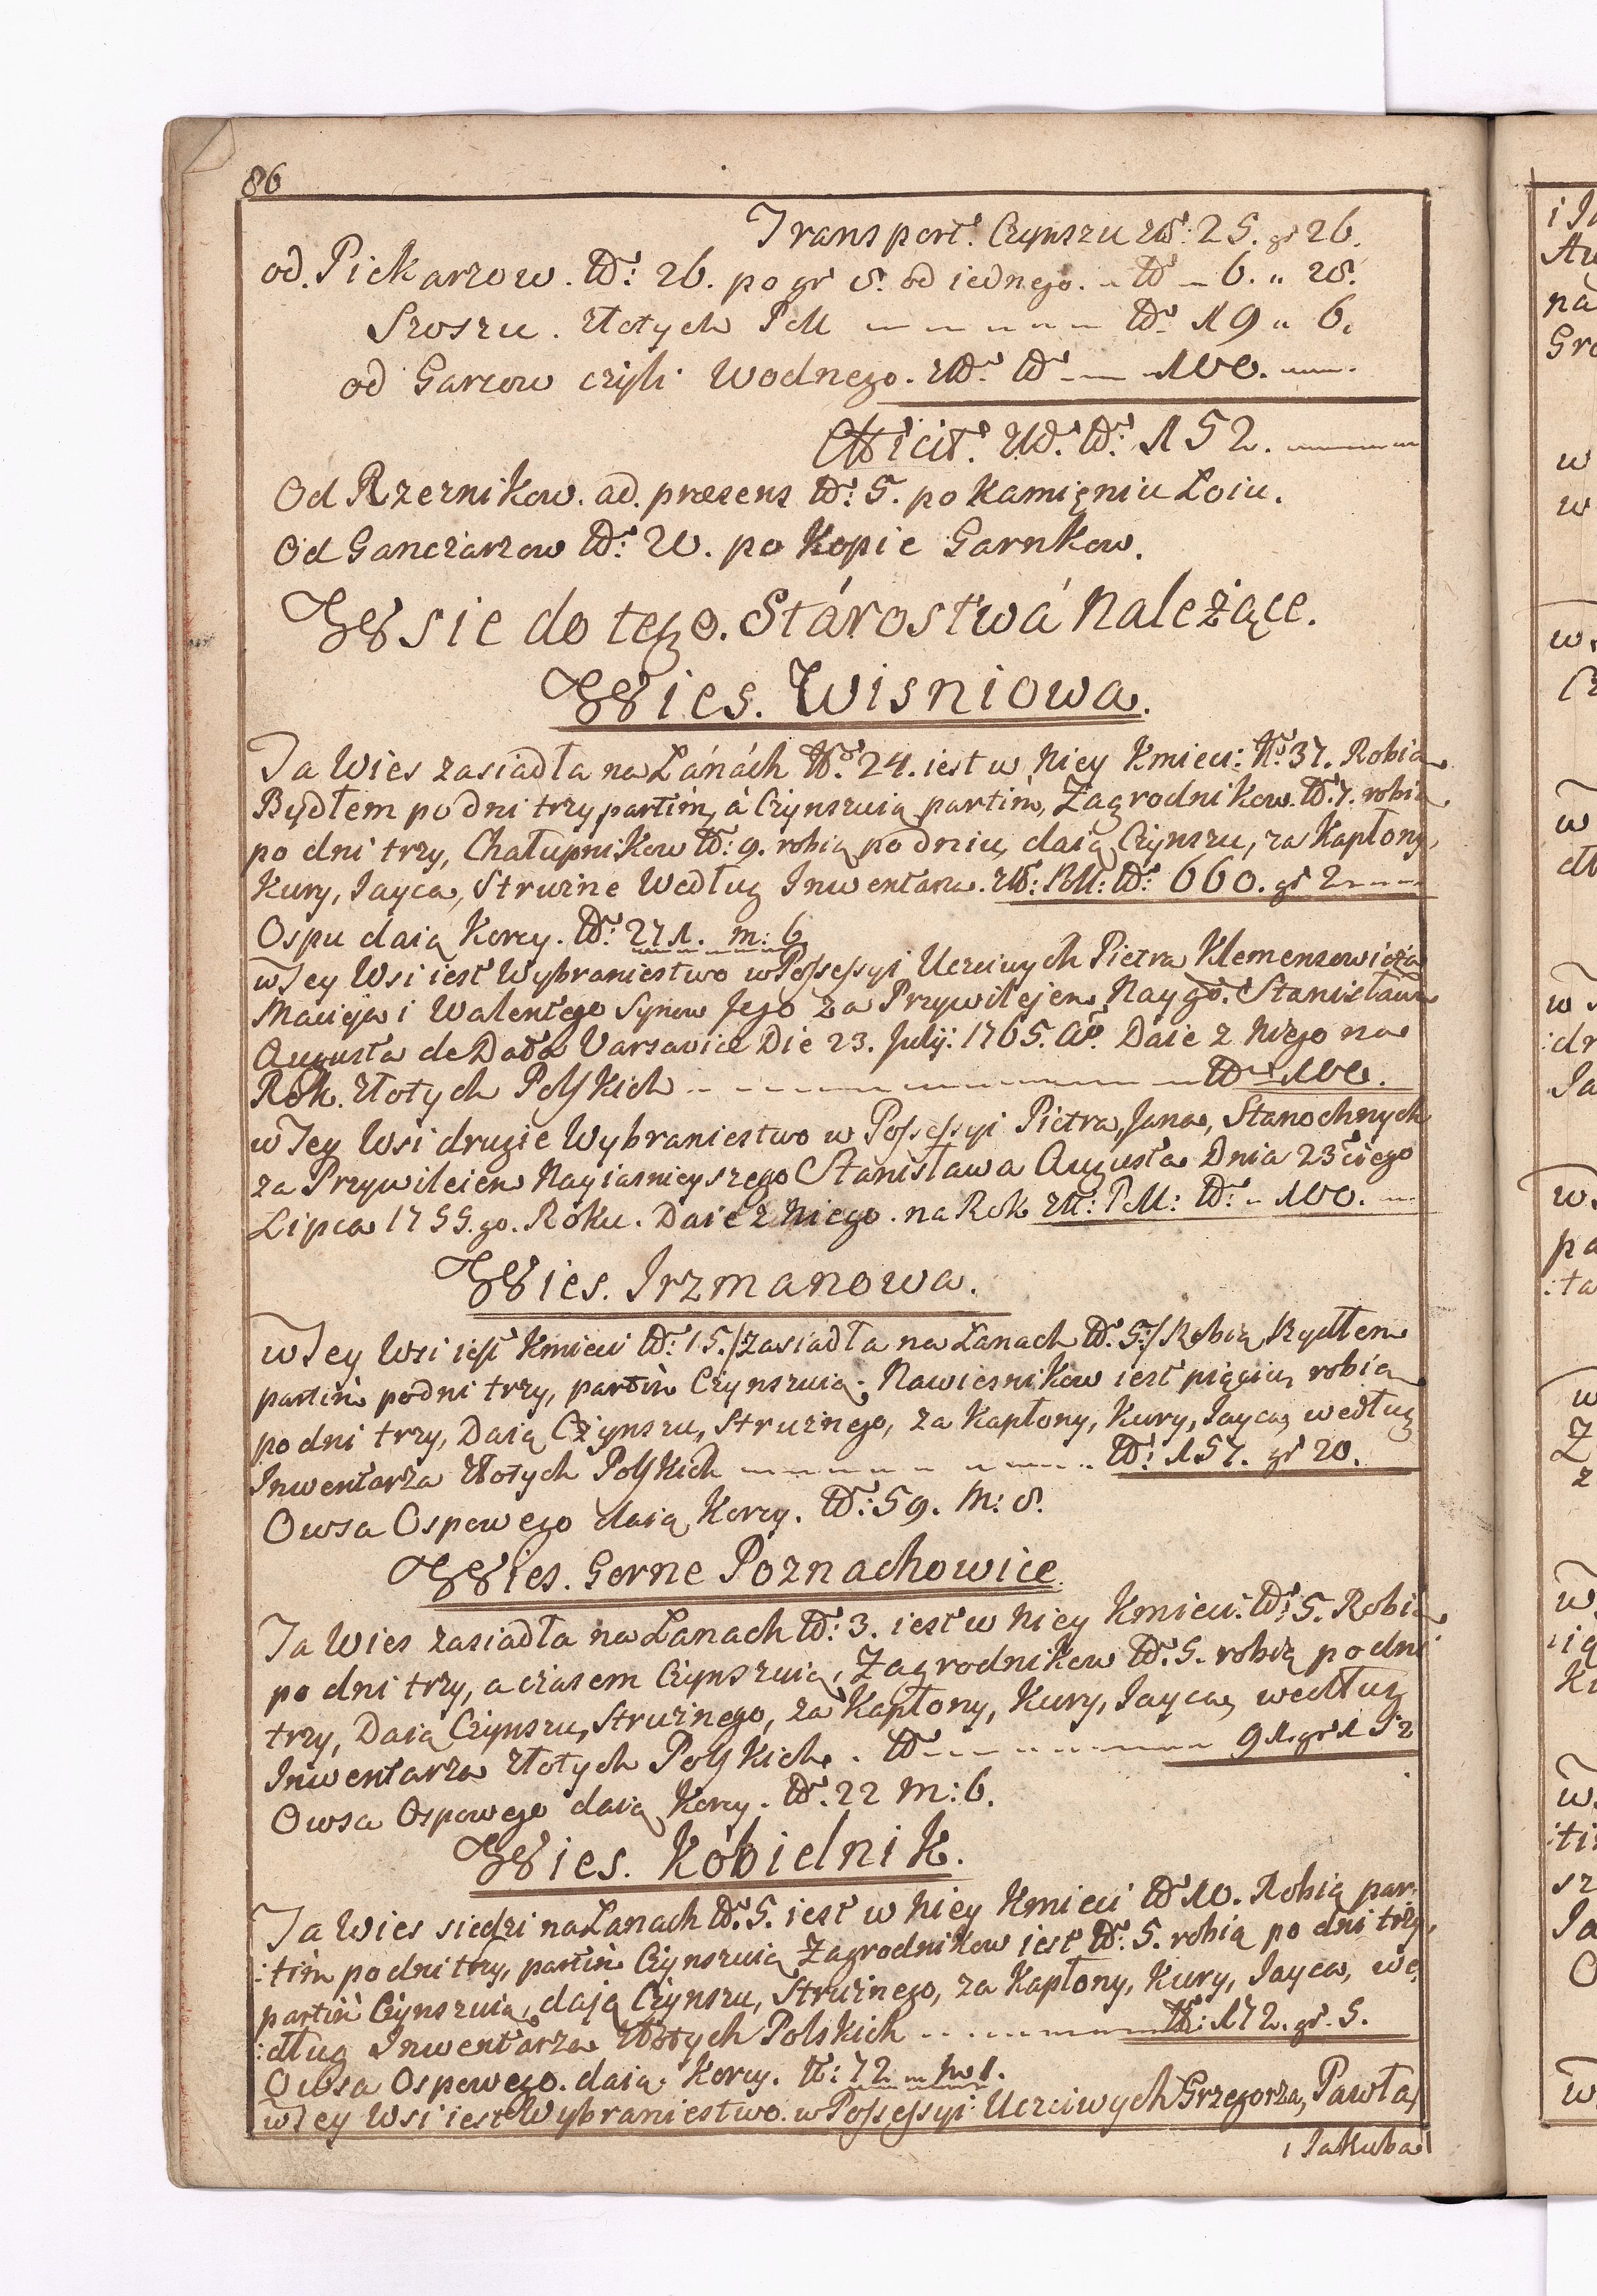 86
Transport. Czynszu Zł: 25. gr 26.
od. Piekarzow. N° 26. po gr 8. od iednego. N° 6. " 28.
Szoszu. Złotych Pol N° 19 " 6.
od Garcow czyli Wodnego. Zł: N° 100.
Efficit. Zł. N° 152.
Od Rzeznikow. ad. præsens N° 5. po Kamięniu Łoiu.
Od Ganczarzow N° 20. po Kopie Garnkow.
Wsie do tego. Stárostwá Należące.
Wies. Wisniowa.
Ta Wies zasiadła na Łánách N° 24. iest w Niey Kmieci: N° 37. Robią
Bydłem po dni trzy partim, á Czynszuią partim, Zagrodnikow. N° 7. robią
po dni trzy, Chałupnikow N° 9. robią po dniu, daią Czynszu, za Kapłony,
Kury, Jayca, Strużne Według Inwentarza. Zł: Pol: N° 660. gr 2
Ospu daią Korcy. N° 271. m: 6
w Tey Wsi iest Wybraniestwo w Possessyi Uczciwych Piotra Klemensowicza
Macieja i Walentego Synow Jego za Przywilejem Naygo. Stanisława
Augusta de Data Varsaviæ Die 23. Julij: 1765. A° Daie z Niego na
Rok. Złotych Polskich N° 100.
w Tey Wsi drugie Wybraniestwo w Possessyi Piotra, Jana, Stanochnych
za Przywileiem Nayiasnieyszego Stanisława Augusta Dnia 23ciego
Lipca 1755.go. Roku. Daie z Niego. na Rok Zł: Pol: N° 100.
Wies. Jrzmanowa.
w Tey Wsi iest Kmieci N° 15./zasiadła na Łanach N° 5:/Robią Bydłem
partim po dni trzy, partim Czynszuią. Nawiesnikow iest pięciu, robią
po dni trzy, Daią Czynszu, Strużnego, za Kapłony, Kury, Jayca, według
Inwentarza Złotych Polskich N° 157. gr 20.
Owsa Ospowego daią Korcy. N° 59. m: 8.
Wies. Gorne Poznachowice
Ta Wies zasiadła na Łanach N° 3. iest w Niey Kmieci: N° 5. Robią
po dni trzy, a czasem Czynszuią, Zagrodnikow N° 5. robią po dni
trzy, Daią Czynszu, Strużnego, za Kapłony, Kury, Jayca, według
Inwentarza Złotych Polskich. N° 91. gr 15 2
Owsa Ospowego daią Korcy. N° 22 m: 6.
Wies. Kobielnik.
Ta Wies siedzi na Łanach N° 5. iest w Niey Kmieci N° 10. Robią par:
:tim po dni trzy, partim Czynszuią, Zagrodnikow iest N° 5. robią po dni trzy,
partim Czynszuią, dają Czynszu, Strużnego, za Kapłony, Kury, Jayca, we:
:dług Inwentarza Złotych Polskich N° 172. gr. 5.
Owsa Ospowego. daią. Korcy. N° 72 m 1.
w Tey Wsi iest Wybraniestwo. w Possessyi Uczciwych Grzegorza, Pawła,
i Jakuba